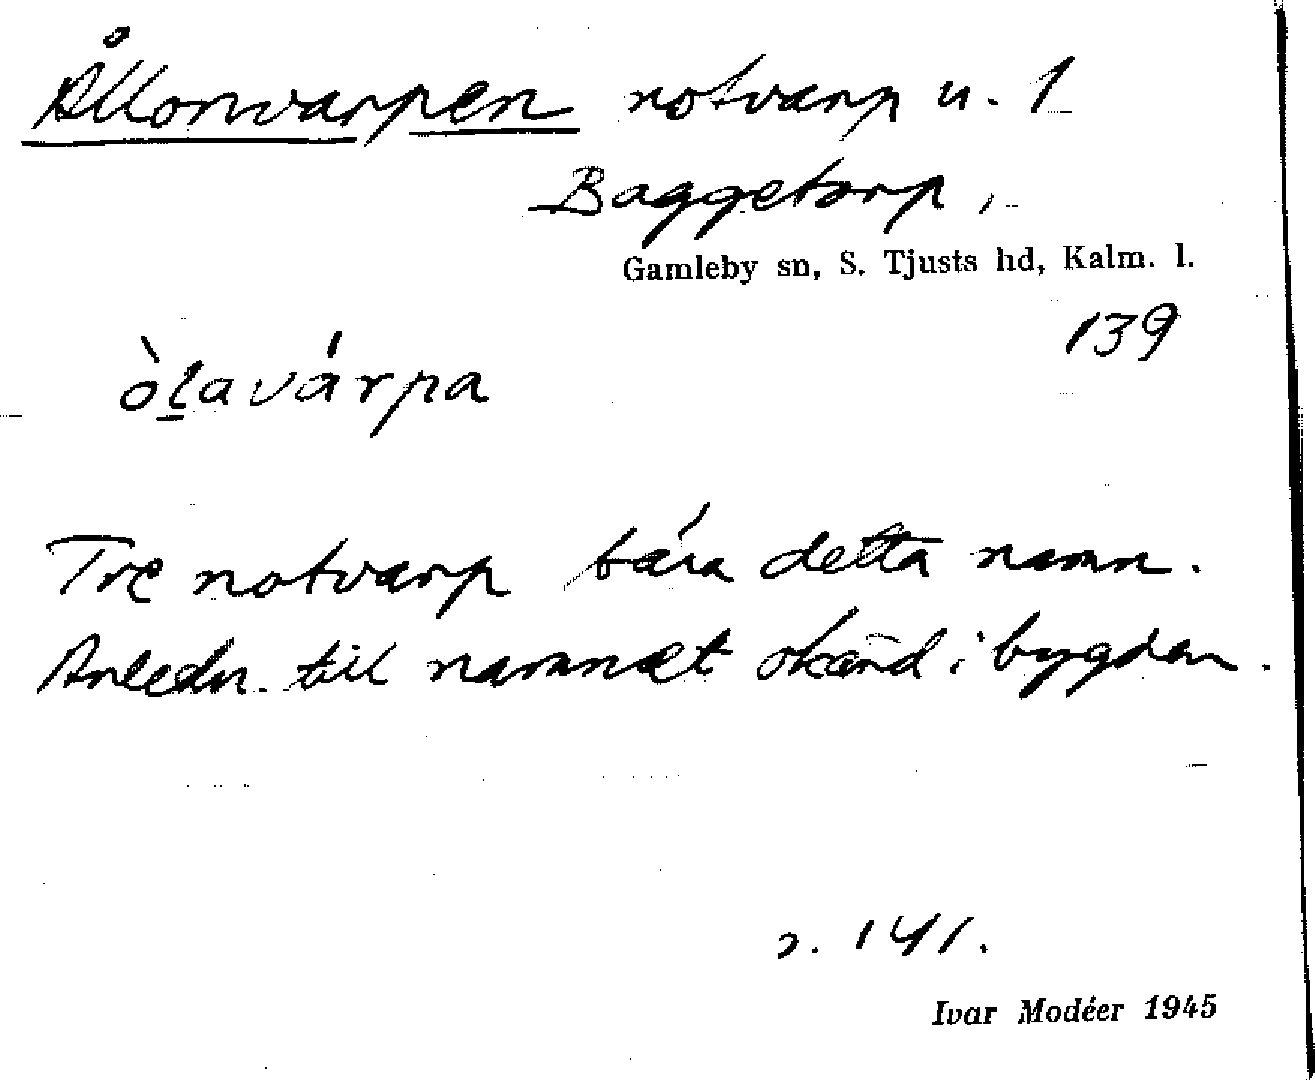 Ållonvarpen notvarp u. 1
Baggetorp,
Gamleby sn, S. Tjusts hd, Kalm. l.
139
òḻavárpa
Tre notvarp bära detta namn.
Anledn. till namnet okänd i bygden.
s. 141.
Ivar Modéer 1945